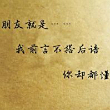 朋友就是┄┄
我前言不搭后语
你却都懂